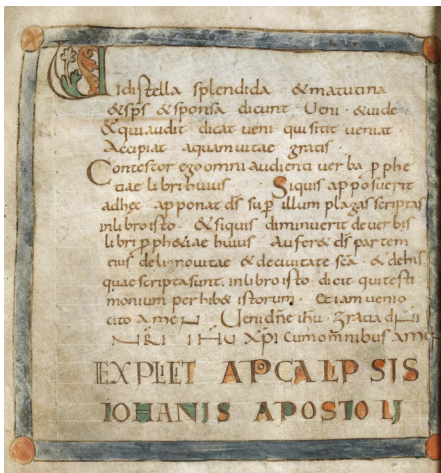 Uidistella splendida & matutina
& sps & sponsa dicunt Ueni · & uide
& qui audit dicat ueni qui sitit ueniat
Accipiat aquam uitae gratis ·
Contestor ego omni audienti uerba pphe
tiae libri huius Siquis apposuerit
adhec apponat ds sup illum plagas scriptas
inlibro isto · & siquis diminuerit de uerbis
libri pph&iae huius aufer& ds partem
eius delignouitae & deciuitate scā · & dehis
quae scriptasunt inlibro isto dicit qui testi
monium perhib& istorum · Etiam uenio
cito amen Ueni dne ihu · Gratia dni
NRI IHU XPI cumomnibus amen
EXPLIET APCALIPSIS
IOHANIS APOSTOLI